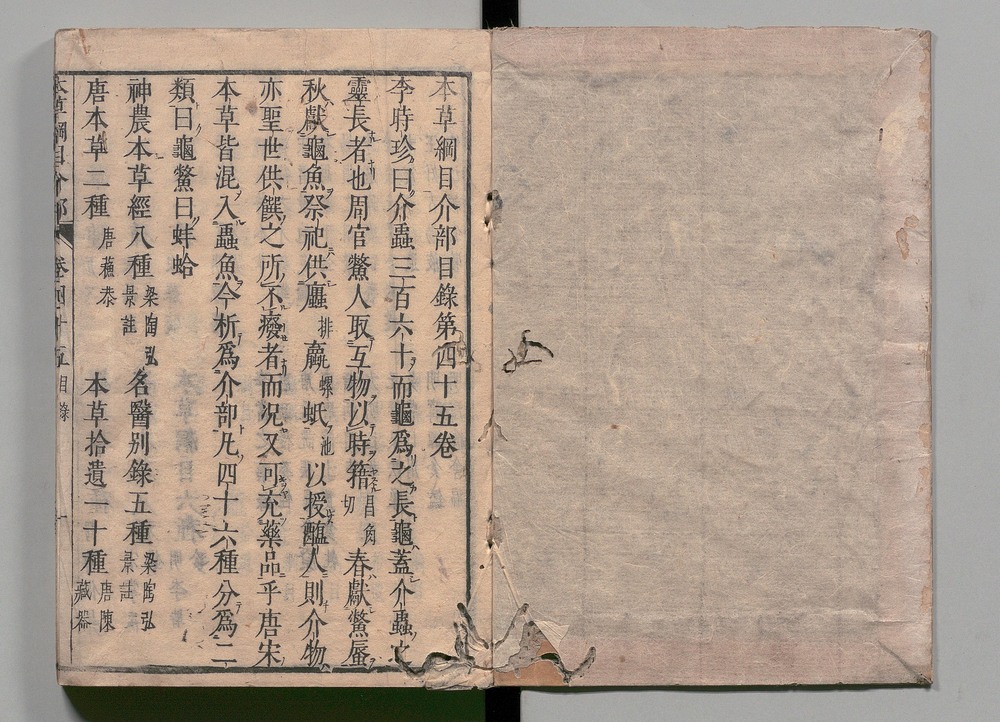 本草綱目介部目錄第四十五卷
李時珍曰介蟲三百六十而龜爲之長龜蓋介蟲之
靈長者也周官鱉人取互物以時籍昌角切春獻鱉蜃
秋獻龜魚祭祀供蠯排蠃螺蚳池以授醢人則介物
亦聖世供饌之所不癈者而况又可充藥品乎唐宋
本草皆混入蟲魚今析爲介部凡四十六種分爲二
類曰龜鱉曰蚌蛤
神農本草經八種梁陶弘景註 名醫别錄五種梁陶弘景註
唐本草二種唐蘓恭 本草拾遺一十種唐陳藏器
本草綱目介部 卷四十五目錄 一